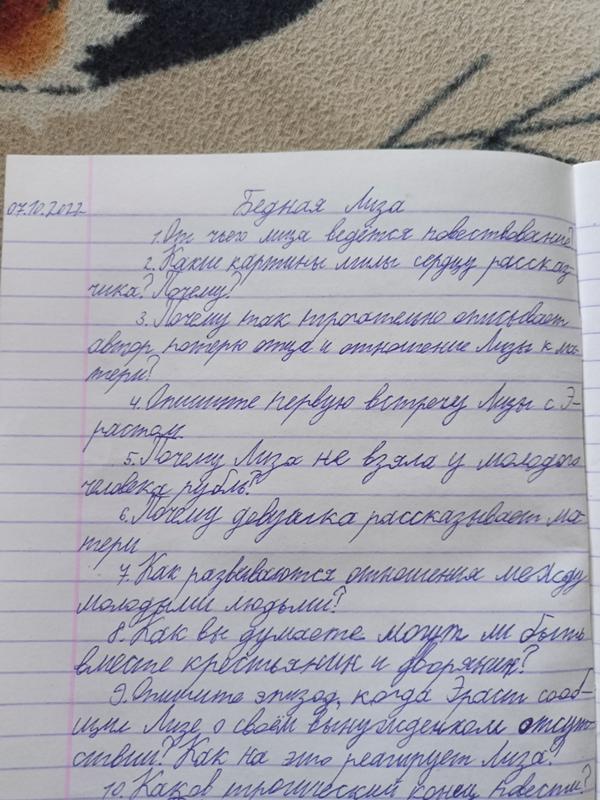 07.10.2022 Бедная Лиза
1. От чьего лица ведётся повествование?
2. Какие картины милы сердцу рассказ-
чика? Почему?
3. Почему так трогательно описывает
автор потерю отца и отношение Лизы к ма-
тери?
4. Опишите первую встречу Лизы с Э-
растом
5. Почему Лиза не взяла у молодого
человека рубль?
6. Почему девушка рассказывает ма-
тери
7. Как развиваются отношения между
молодыми людьми?
8. Как вы думаете могут ли быть
вместе крестьянин и дворянин?
9. Опишите эпизод, когда Эраст сооб-
щил Лизе о своём вынужденном отсут-
ствии? Как на это реагирует Лиза?
10. Каков трагический конец повести?